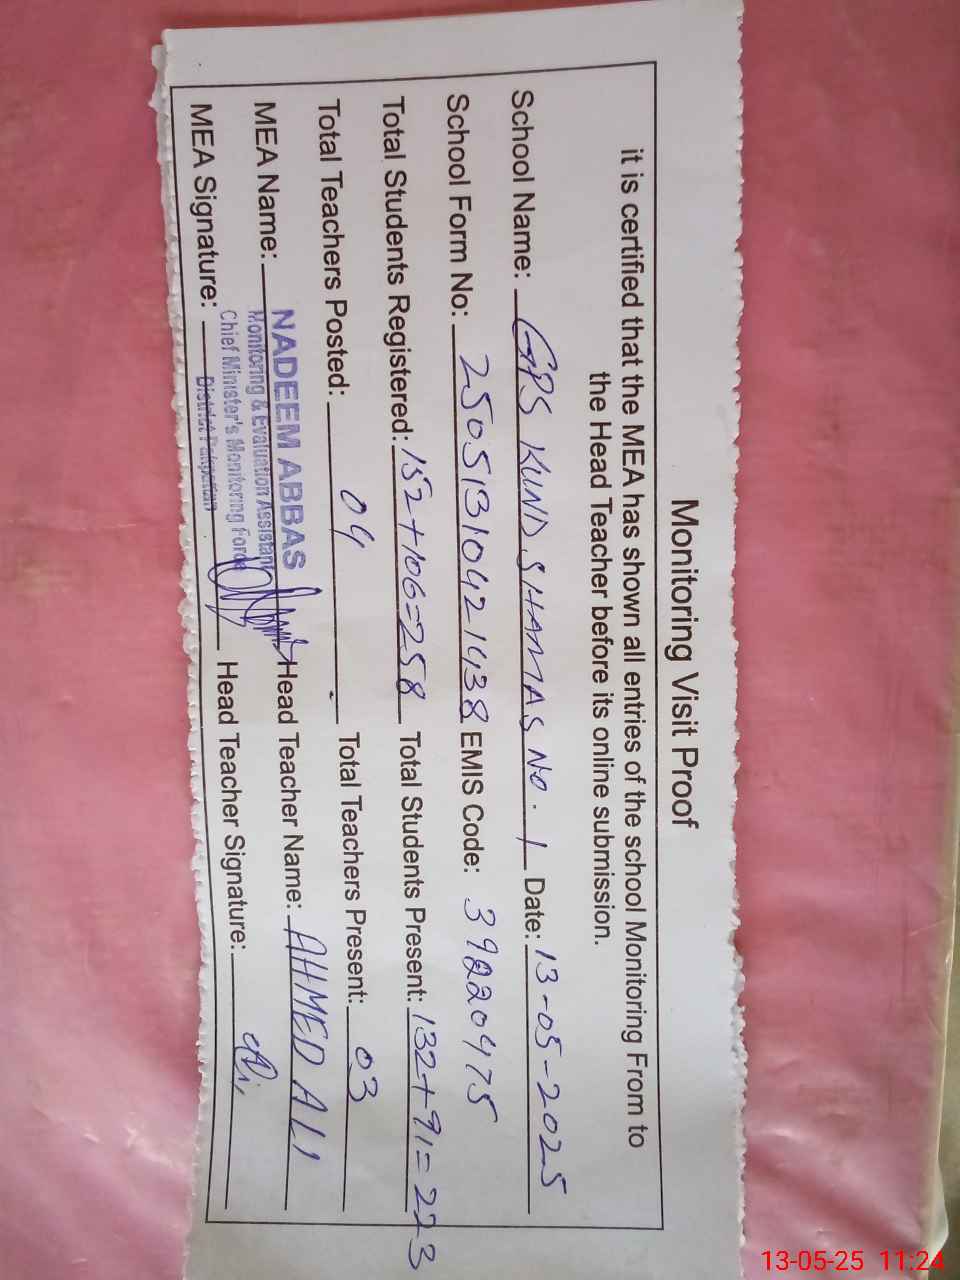 Monitoring Visit Proof
it is certified that the MEA has shown all entries of the school Monitoring From to
the Head Teacher before its online submission.
School Name: GPS KUND SHAMAS NO. 1 Date: 13-05-2025
School Form No: 25051310421438 EMIS Code: 39220475
Total Students Registered: 152+106=258 Total Students Present: 132+91=223
Total Teachers Posted: 04 Total Teachers Present: 03
MEA Name: NADEEM ABBAS Head Teacher Name: AHMED ALI
Monitoring & Evaluation Assistant
Chief Minister's Monitoring Force
MEA Signature: District Pakpattan Head Teacher Signature: Ali
13-05-25 11:24